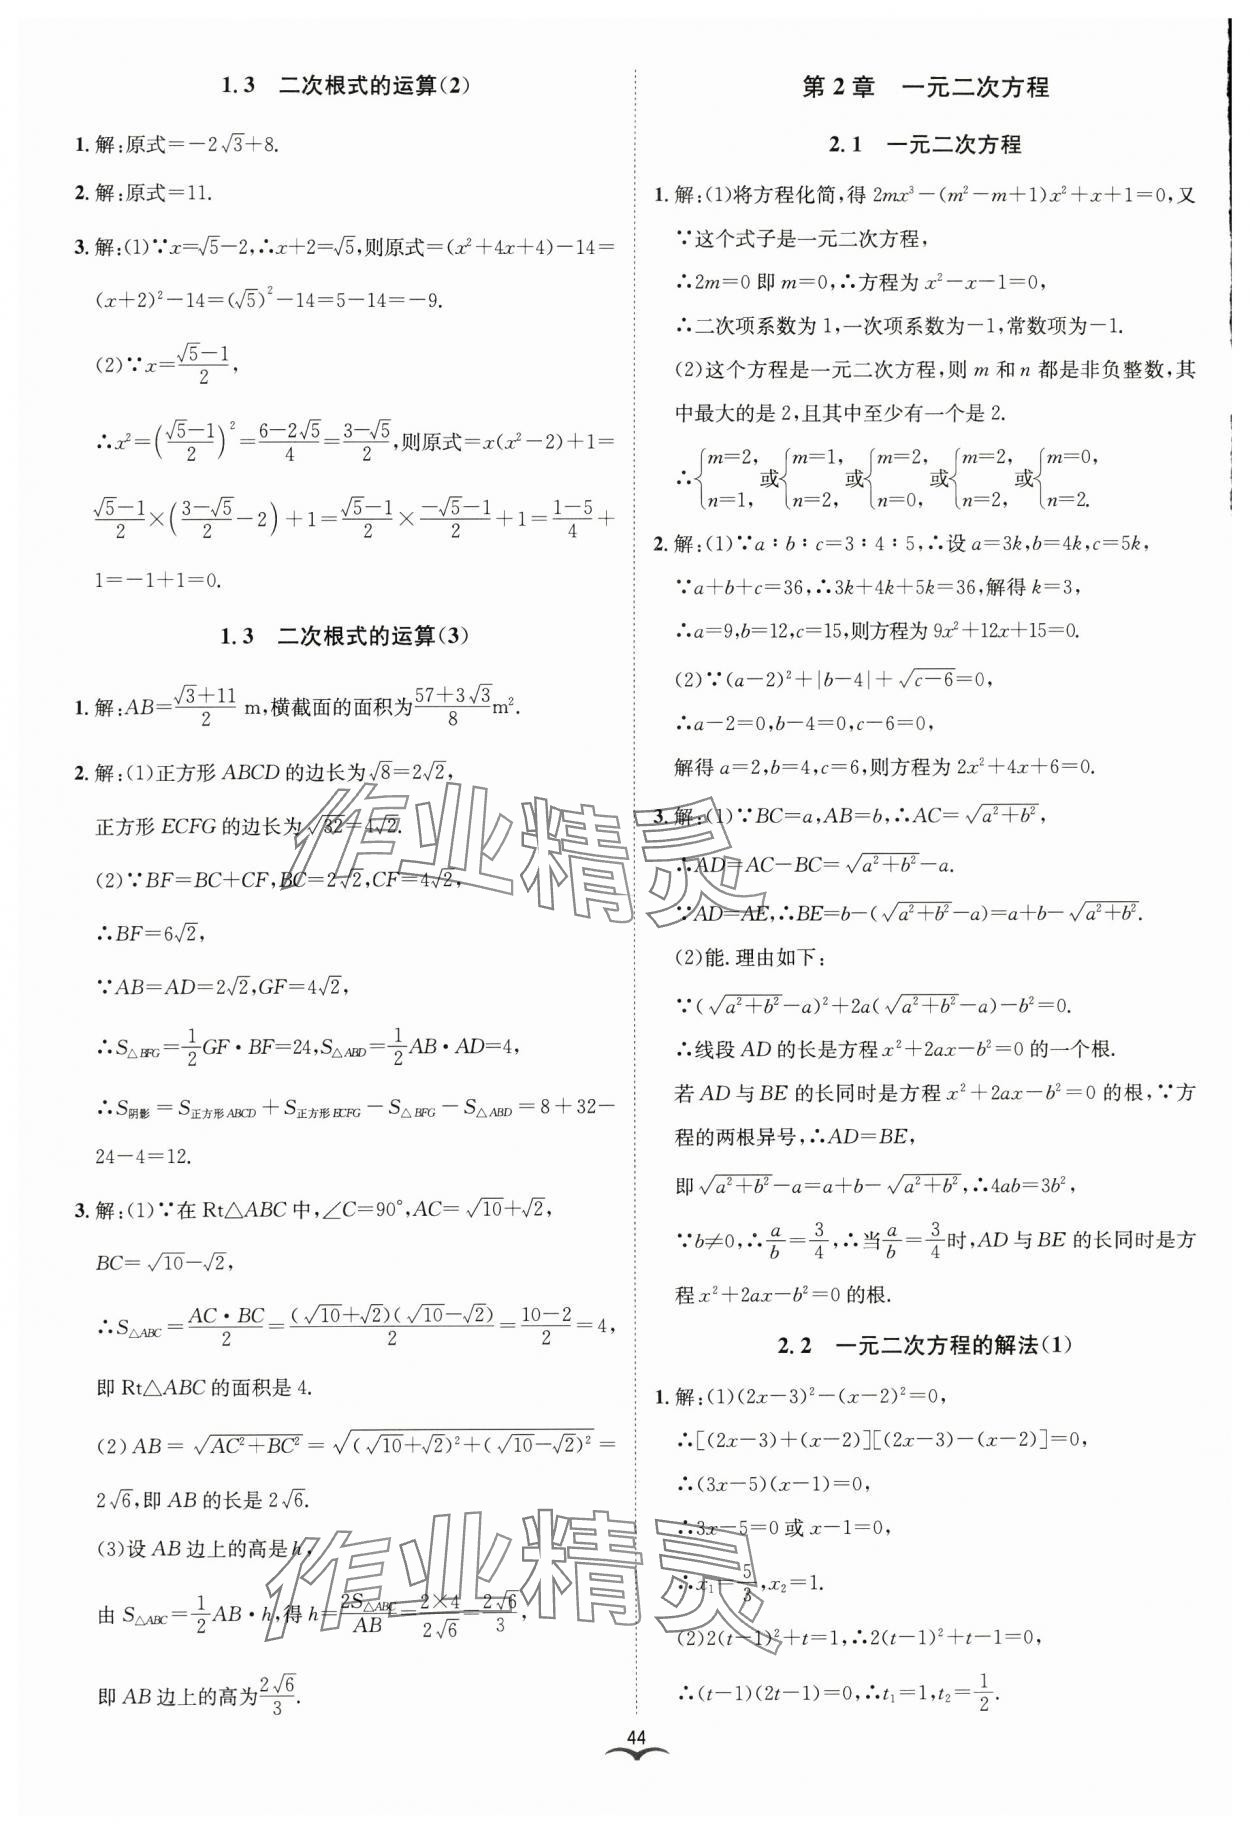 1.3 二次根式的运算(2)
1. 解:原式=-2√3+8.
2. 解:原式=11.
3. 解:(1)∵x=√5-2,∴x+2=√5,则原式=(x²+4x+4)-14=
(x+2)²-14=(√5)²-14=5-14=-9.
(2)∵x=(√5-1)/2,
∴x²=((√5-1)/2)²=(6-2√5)/4=(3-√5)/2,则原式=x(x²-2)+1=
(√5-1)/2×((3-√5)/2-2)+1=(√5-1)/2×(-√5-1)/2+1=(1-5)/4+
1=-1+1=0.
1.3 二次根式的运算(3)
1. 解:AB=(√3+11)/2 m,横截面的面积为(57+3√3)/8 m².
2. 解:(1)正方形 ABCD 的边长为√8=2√2,
正方形 ECFG 的边长为√32=4√2.
(2)∵BF=BC+CF,BC=2√2,CF=4√2,
∴BF=6√2,
∵AB=AD=2√2,GF=4√2,
∴S△BFG=1/2 GF·BF=24,S△ABD=1/2 AB·AD=4,
∴S阴影=S正方形ABCD+S正方形ECFG-S△BFG-S△ABD=8+32-
24-4=12.
3. 解:(1)∵在 Rt△ABC 中,∠C=90°,AC=√10+√2,
BC=√10-√2,
∴S△ABC=(AC·BC)/2=((√10+√2)(√10-√2))/2=(10-2)/2=4,
即 Rt△ABC 的面积是 4.
(2)AB=√(AC²+BC²)=√((√10+√2)²+(√10-√2)²)=
2√6,即 AB 的长是 2√6.
(3)设 AB 边上的高是 h,
由 S△ABC=1/2 AB·h,得 h=2S△ABC/AB=(2×4)/(2√6)=2√6/3,
即 AB 边上的高为2√6/3.
第 2 章 一元二次方程
2.1 一元二次方程
1. 解:(1)将方程化简,得 2mx³-(m²-m+1)x²+x+1=0,又
∵这个式子是一元二次方程,
∴2m=0 即 m=0,∴方程为 x²-x-1=0,
∴二次项系数为 1,一次项系数为-1,常数项为-1.
(2)这个方程是一元二次方程,则 m 和 n 都是非负整数,其
中最大的是 2,且其中至少有一个是 2.
∴{m=2, n=1,或{m=1, n=2,或{m=2, n=0,或{m=2, n=2,或{m=0, n=2.
2. 解:(1)∵a∶b∶c=3∶4∶5,∴设 a=3k,b=4k,c=5k,
∵a+b+c=36,∴3k+4k+5k=36,解得 k=3,
∴a=9,b=12,c=15,则方程为 9x²+12x+15=0.
(2)∵(a-2)²+|b-4|+√(c-6)=0,
∴a-2=0,b-4=0,c-6=0,
解得 a=2,b=4,c=6,则方程为 2x²+4x+6=0.
3. 解:(1)∵BC=a,AB=b,∴AC=√(a²+b²),
∴AD=AC-BC=√(a²+b²)-a.
∵AD=AE,∴BE=b-(√(a²+b²)-a)=a+b-√(a²+b²).
(2)能.理由如下:
∵(√(a²+b²)-a)²+2a(√(a²+b²)-a)-b²=0.
∴线段 AD 的长是方程 x²+2ax-b²=0 的一个根.
若 AD 与 BE 的长同时是方程 x²+2ax-b²=0 的根,∵方
程的两根异号,∴AD=BE,
即√(a²+b²)-a=a+b-√(a²+b²),∴4ab=3b²,
∵b≠0,∴a/b=3/4,∴当a/b=3/4时,AD 与 BE 的长同时是方
程 x²+2ax-b²=0 的根.
2.2 一元二次方程的解法(1)
1. 解:(1)(2x-3)²-(x-2)²=0,
∴[(2x-3)+(x-2)][(2x-3)-(x-2)]=0,
∴(3x-5)(x-1)=0,
∴3x-5=0 或 x-1=0,
∴x₁=5/3,x₂=1.
(2)2(t-1)²+t=1,∴2(t-1)²+t-1=0,
∴(t-1)(2t-1)=0,∴t₁=1,t₂=1/2.
44
作业精灵
作业精灵